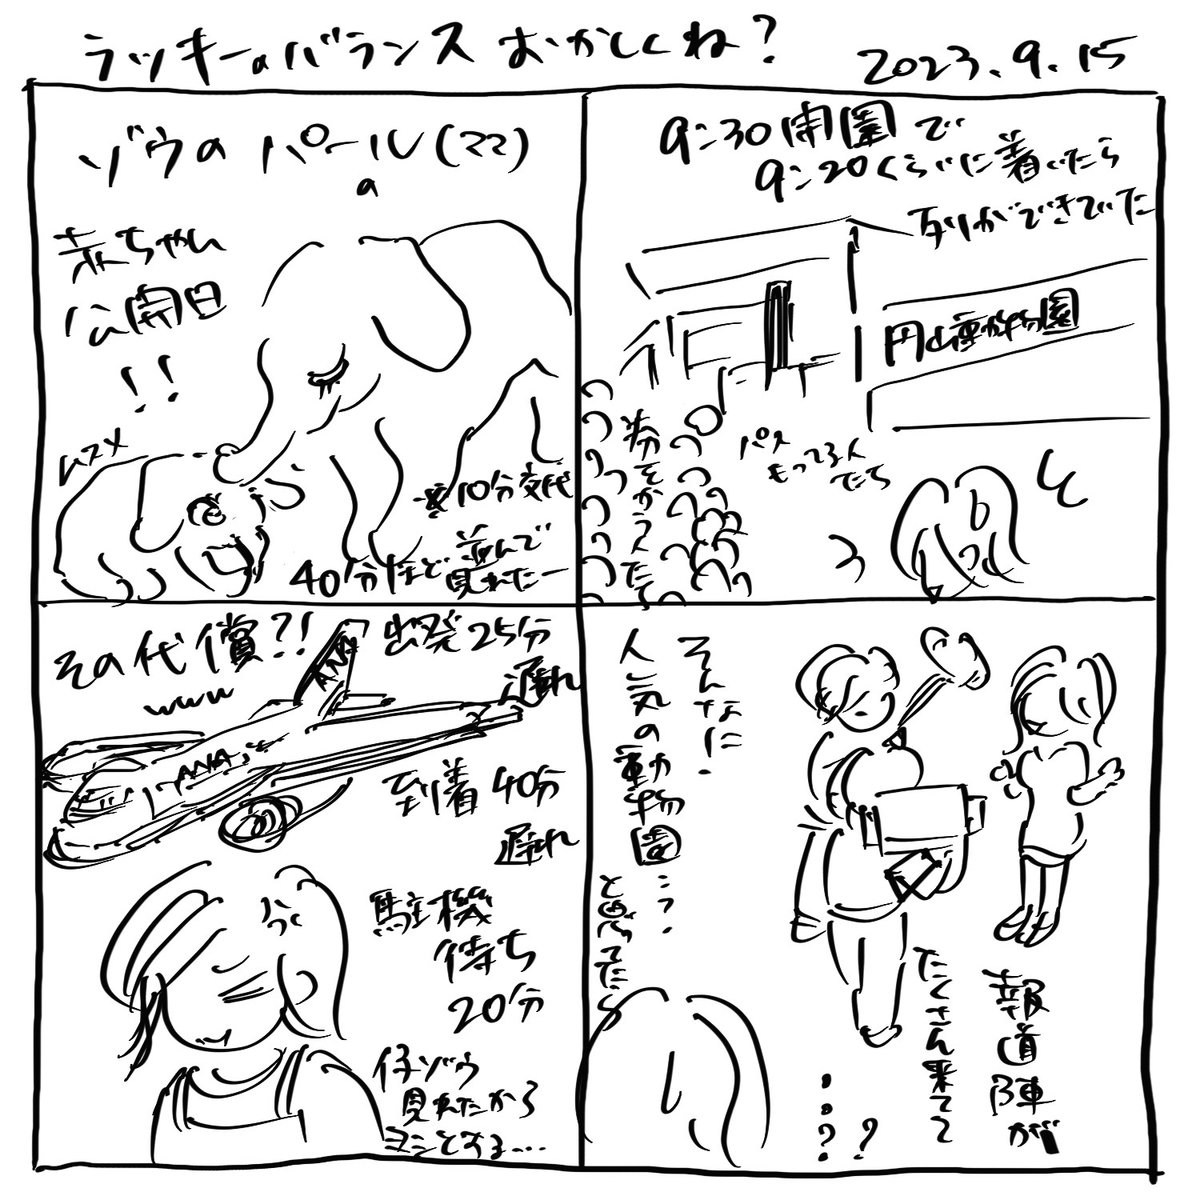 ラッキーのバランスおかしくね？
2023.9.15
9:30開園で
9:20くらいに着いたら
列ができてでた
円山動物園
券をかえてた
パス
もってる人
たち
そんなに
人気の動物園…？
と思ってたら
報道陣が
たくさん来てて
…？？
ゾウのパール(ママ)
の
赤ちゃん
公開日
!!
ムスメ
※10分交代
40分ほど並んで
見れたー
その代償?!
www
ANA
ANA
出発25分
遅れ
到着40分
遅れ
駐機
待ち
20分
仔ゾウ
見れたから
ヨシとする…